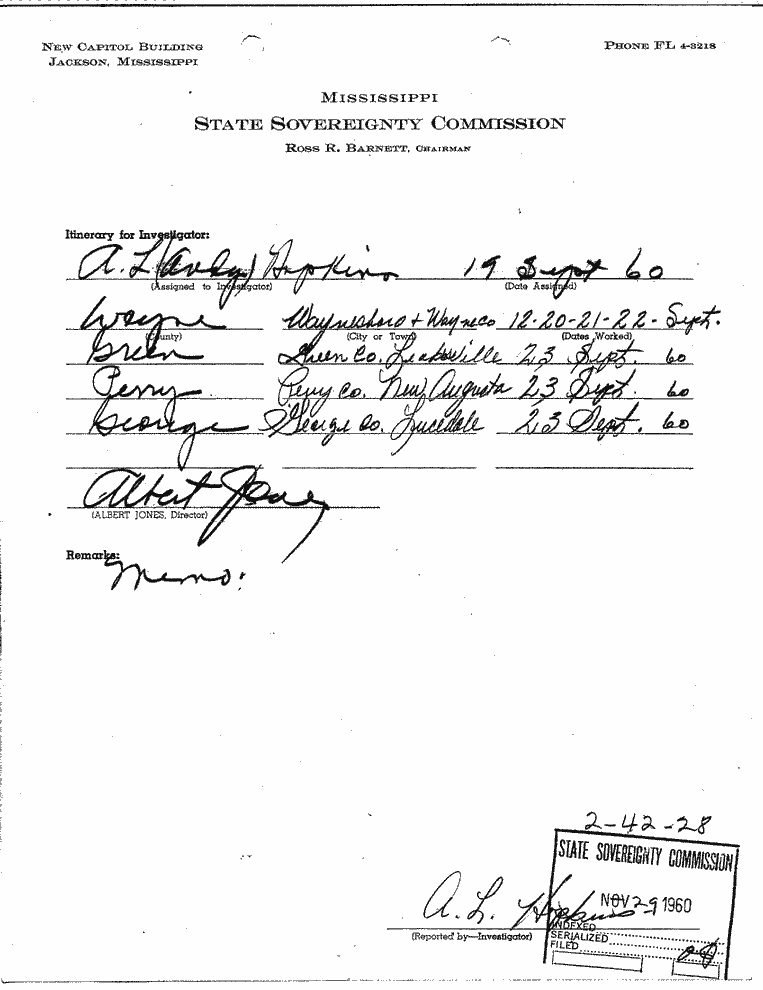 NEW CAPITOL BUILDING
JACKSON, MISSISSIPPI
PHONE FL 4-3218
MISSISSIPPI
STATE SOVEREIGNTY COMMISSION
ROSS R. BARNETT, CHAIRMAN
Itinerary for Investigator:
A. L. (Andy) Hopkins 19 Sept 60
(Assigned to Investigator) (Date Assigned)
Wayne Waynesboro + Wayne co 12-20-21-22- Sept.
(County) (City or Town) (Dates Worked)
Green Green Co. Leakesville 23 Sept. 60
Perry Perry co. New Augusta 23 Sept. 60
George George Co. Lucedale 23 Sept. 60
Albert Jones
(ALBERT JONES, Director)
Remarks:
Memo:
2-42-28
STATE SOVEREIGNTY COMMISSION
NOV 29 1960
A. L. Hopkins
INDEXED
(Reported by—Investigator)
SERIALIZED
FILED